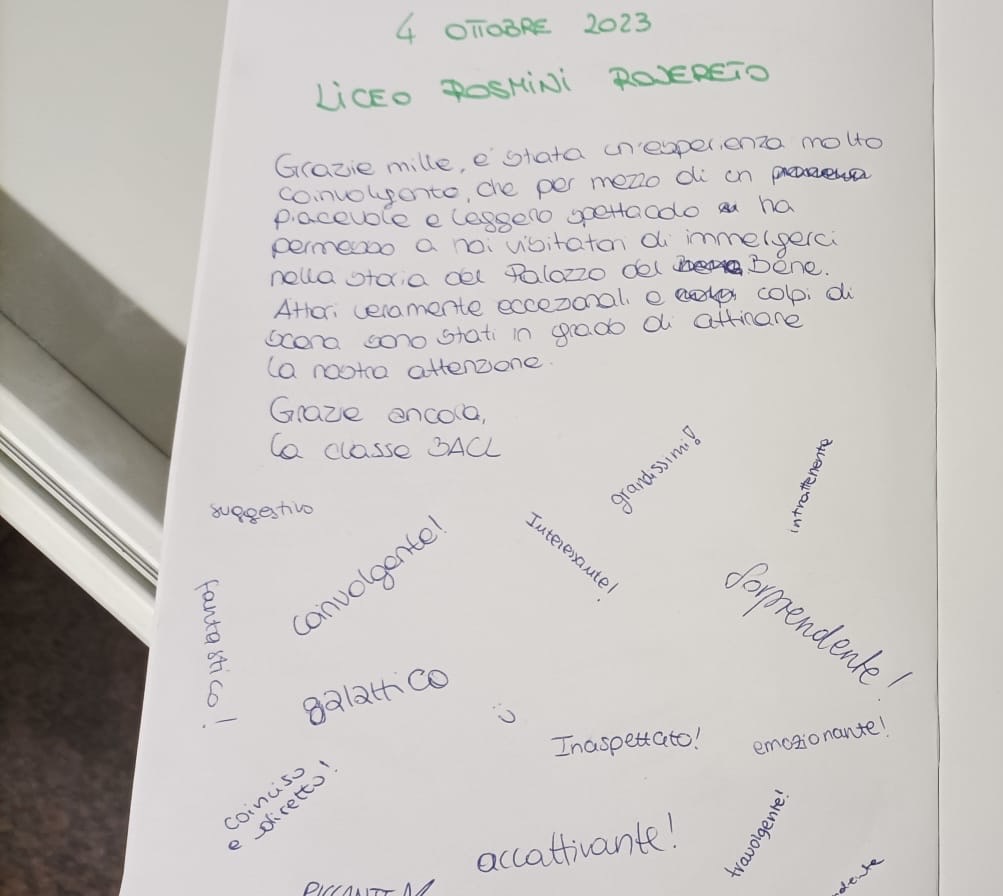 4 OTTOBRE 2023
LICEO ROSMINI ROVERETO
Grazie mille, è stata un'esperienza molto
coinvolgente, che per mezzo di un
piacevole e leggero spettacolo ha
permesso a noi visitatori di immergerci
nella storia del Palazzo del Bene.
Attori veramente eccezionali e colpi di
scena sono stati in grado di attirare
la nostra attenzione.
Grazie ancora,
la classe 3ACL
grandissimi!
intrattenente
suggestivo
coinvolgente!
Interessante!
Sorprendente!
fantastico!
galattico
Inaspettato!
emozionante!
coinciso
e diretto!
travolgente!
accattivante!